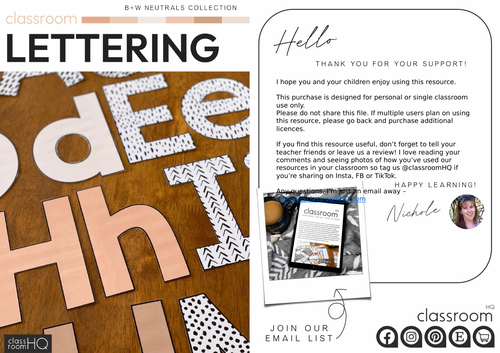 B+W NEUTRALS COLLECTION
classroom
LETTERING
d
Ee
Hh
I
class
roomHQ
Hello
THANK YOU FOR YOUR SUPPORT!
I hope you and your children enjoy using this resource.
This purchase is designed for personal or single classroom
use only.
Please do not share this file. If multiple users plan on using
this resource, please go back and purchase additional
licences.
If you find this resource useful, don't forget to tell your
teacher friends or leave us a review! I love reading your
comments and seeing photos of how you've used our
resources in your classroom so tag us @classroomHQ if
you're sharing on Insta, FB or TikTok.
Any questions, I'm just an email away –
HAPPY LEARNING!
Nichole
classroom
JOIN OUR
EMAIL LIST
HQ
classroom